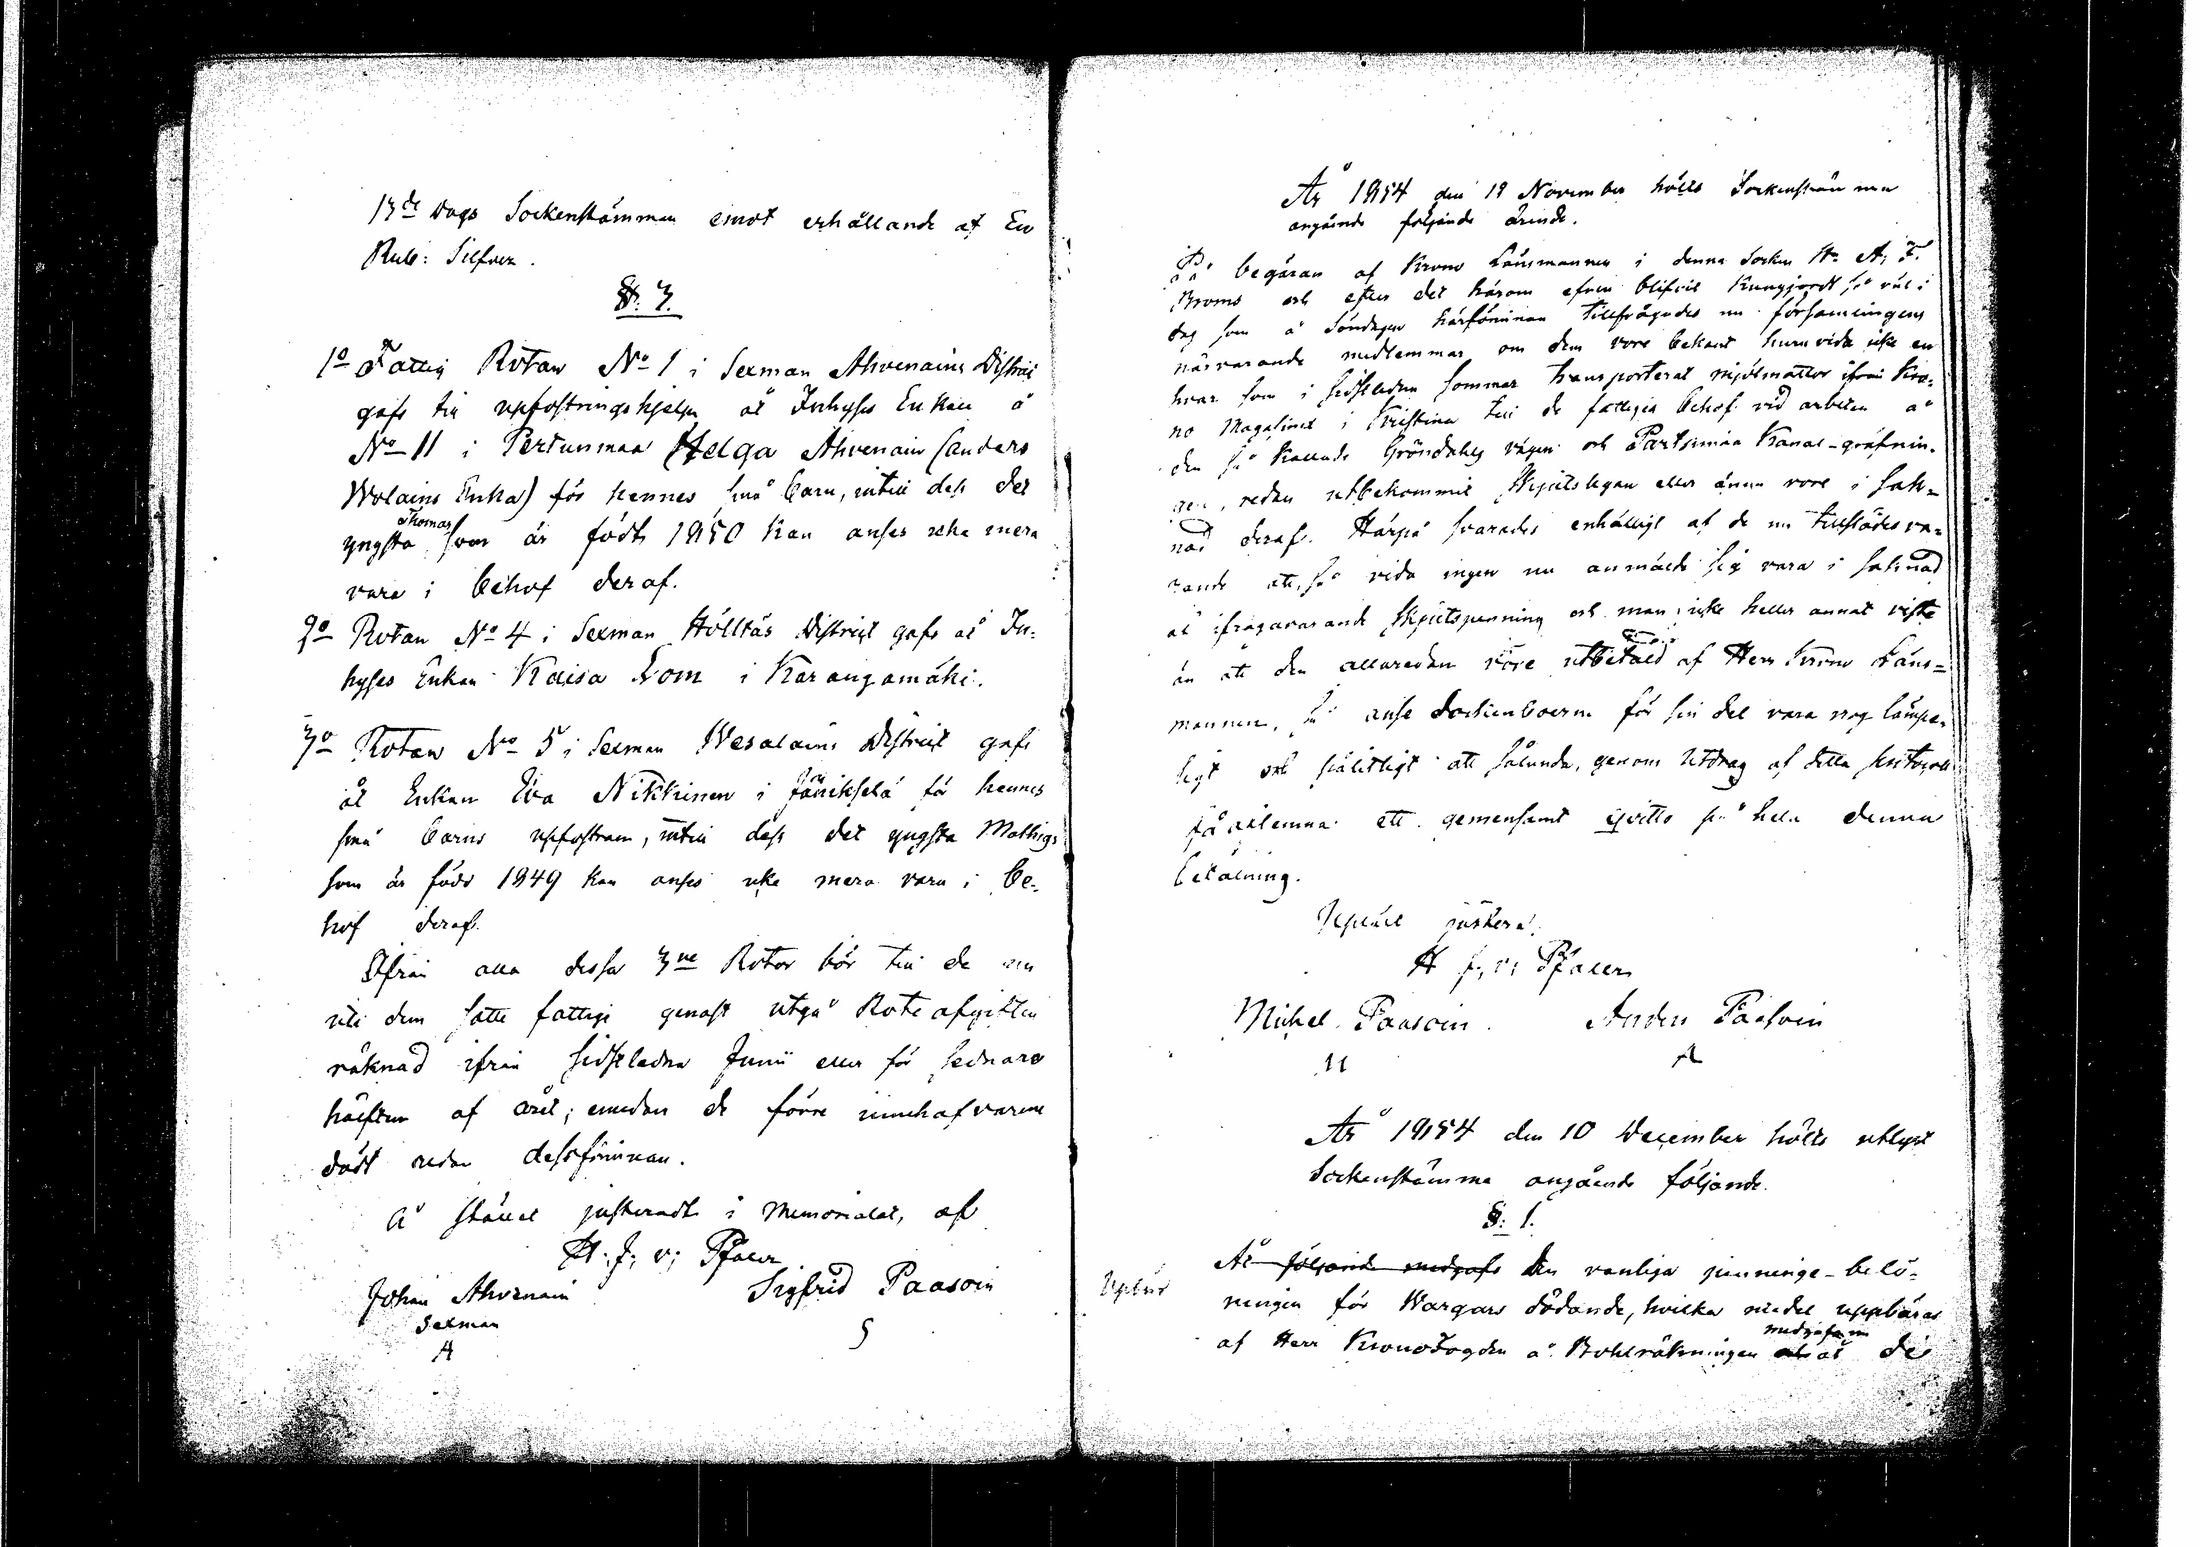 13de Dags Sockenstämman emot erhållande af En
Rub: Silfver.
§. 3.
1o Fattig Rotan No 1 i Sexman Ahvenains District
gafs till uppfostringshjelp åt Inhyses Enkan å
No 11 i Pertunmaa Helga Ahvenain (Anders
Wolains Enka) för hennes små barn, intill dess det
yngsta Thomas som är född 1850 kan anses icke mera
vara i behof deraf.
2o Rotan No 4 i Sexman Hölltäs District gafs åt In-
hyses Enkan Kaisa Lom i Karangamäki.
3o Rotan No 5 i Sexman Wesalains District gafs
åt Enkan Eva Nikkinen i för hennes
små barns uppfostran, intill dess det yngsta Mathias
som är född 1849 kan anses icke mera vara i be-
hof deraf.
Ifrån alla dessa 3ne Rotor bör till de nu
uti dem satte fattige genast utgå Rote afgiften
räknad ifrån sidstledne Junii eller för sednare
hälften af året; emedan de förre innehafvarene
dödt redan dessförinnan.
På stället justeradt i Memorialet, af
H. J. v; Pfaler
Johan Ahvenain Sigfrid Paasoin
Sexman
A S
År 1854 den 19 November hölts Sockenstämma
angående följande ärende.
På begäran af Krono Länsmannen i denna Socken Hr A. F.
Broms och efter det härom äfven blifvit kungjordt så väl i
dag som å Söndagen härförinnan tillfrågades nu församlingens
närvarande medlemmar om dem vore bekant huruvida icke en
hvar som i sidstledne sommar transporterat mjölmattor ifrån Kro-
no Magasinet i Kristina till de fattigas behof vid arbeten å
den så kallade Gröndahls vägen och Partsimaa Kanal-gräfnin-
gen, redan utbekommit Skjutslegan eller ännu vore i sak-
nad deraf. Härpå svarades enhälligt af de nu tillstädesva-
rande att, så vida ingen nu anmälde sig vara i saknad
af ifrågavarande Skjutspenning och man icke heller annat viste
än att den allaredan vore utbetald af Herr Krono Läns-
mannen, så anse Sockenboerne för sin del vara nog lämpe-
ligt och pålitligt att sålunda, genom Utdrag af detta protocoll
få aflemna ett gemensamt qvitto på hela denna
betalning.
Upläst justera!
H J; v; Pfaler
Michel Paasoin. Anders Paasoin
M A
År 1854 den 10 December hölts utlyst
Sockenstämma angående följande.
§: 1.
Åt följande medgafs Den vanliga pennninge-belö-
ningen för Wargars dödande, hvilka medel uppbäras
af Herr Kronofogden å Bohlräkningen medgafs nu åt de